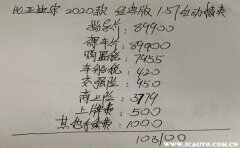 比亚迪宋 2020款 经典版 1.5T自动精英
指导价: 89900
裸车价: 89900
购置税: 7955
车船税: 420
交强险: 950
商业险: 3779
上牌费: 500
其他杂费: 1000
103100
www.icauto.com.cn